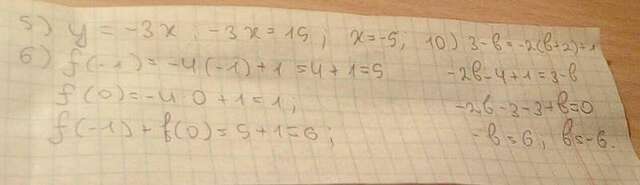 5) y = -3x ; -3x = 15 ; x = -5 ;
6) f(-1) = -4(-1)+1 = 4+1 = 5
f(0) = -4·0+1 = 1 ;
f(-1) + f(0) = 5+1 = 6 ;
10) 3-b = -2(b+2)+1
-2b-4+1 = 3-b
-2b-3-3+b=0
-b = 6, b = -6.